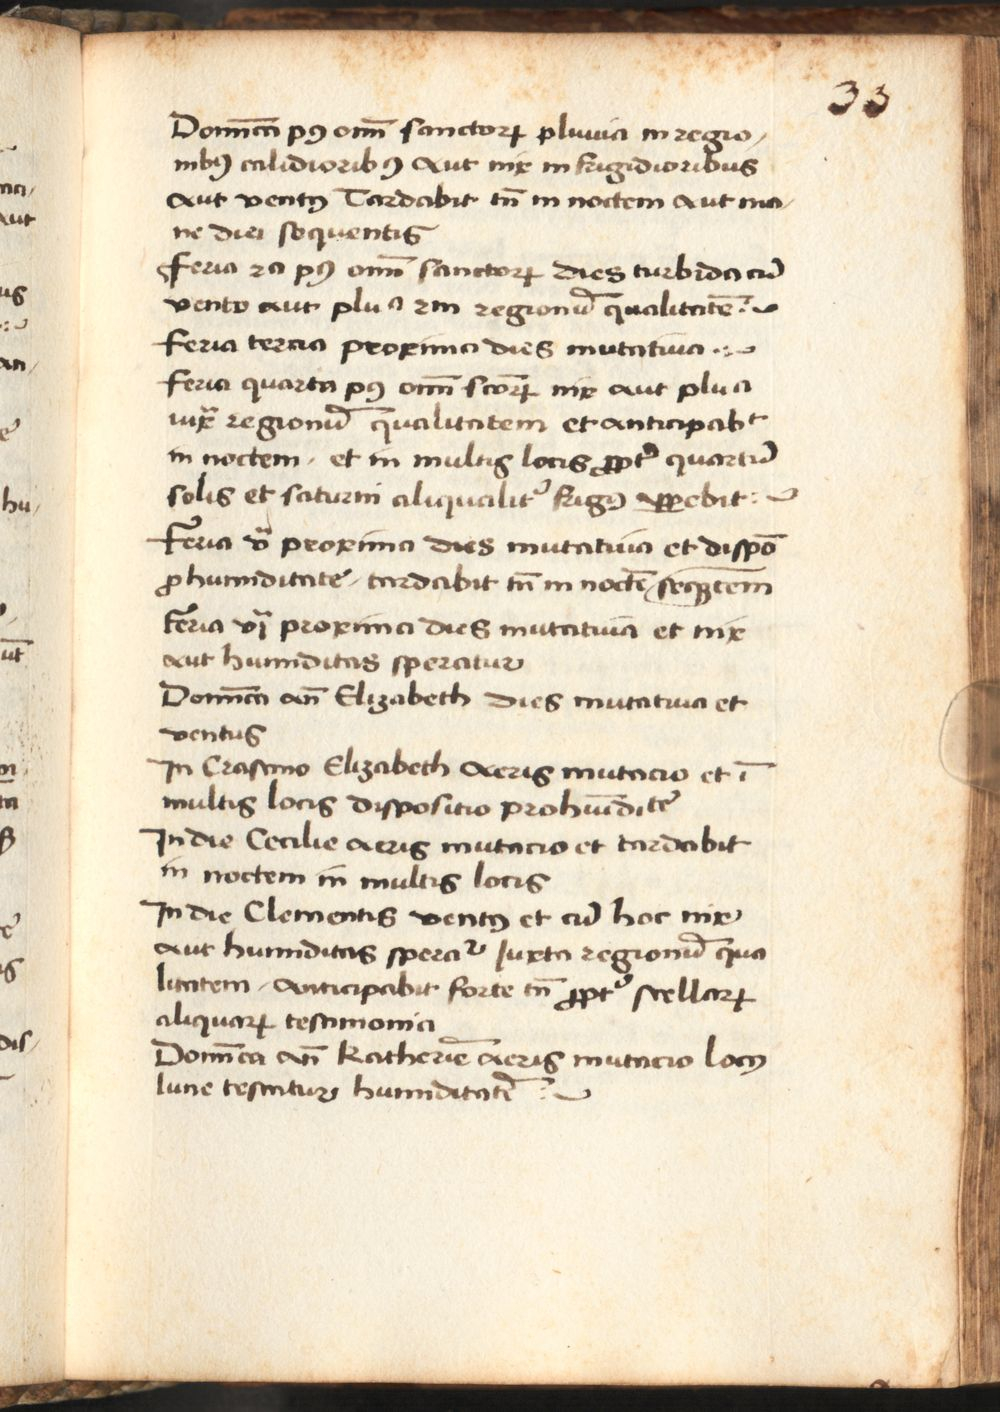 33
Domica pꝰ om̄ sanctoꝝ pluuia in regio-
nibꝰ calidioribꝰ aut nix in frigidioribus
aut ventꝰ Tardabit tn̄ in noctem aut ma-
ne diei sequentis
feria 2a pꝰ om̄ sanctoꝝ dies turbida cū
vento aut pluuia regionū qualitatē
feria tercia proxima dies mutatiua
feria quarta pꝰ om̄ scoꝝ nix aut pluia
iuxͣ regionū qualitatem et anticipabt
in noctem, et in multis locis ꝓpt̓ quartū
solis et saturni aliqualit̓ frigꝰ apꝑebit
Feria vͣ proxima dies mutatiua et dispō
ꝓ humiditate, tardabit tn̄ in noctē seqn̄tem
Feria vjͣ proxima dies mutatiua et nix
aut humiditas speratur
Domica an̄ Elizabeth dies mutatiua et
ventus
In Crastino Elizabeth aeris mutacio et ī
multis locis dispositio pro hūidite
In die Cecilie aeris mutacio et tardabit
in noctem in multis locis
In die Clementis ventꝰ et cū hoc nix
aut humiditas speraᵗ Juxta regionū qua
litatem, anticipabit forte tn̄ ꝓpt̓ stellaꝝ
aliquaꝝ testimonia
Domica an̄ Katherīe aeris mutacio locꝰ
lune testatur humiditatē